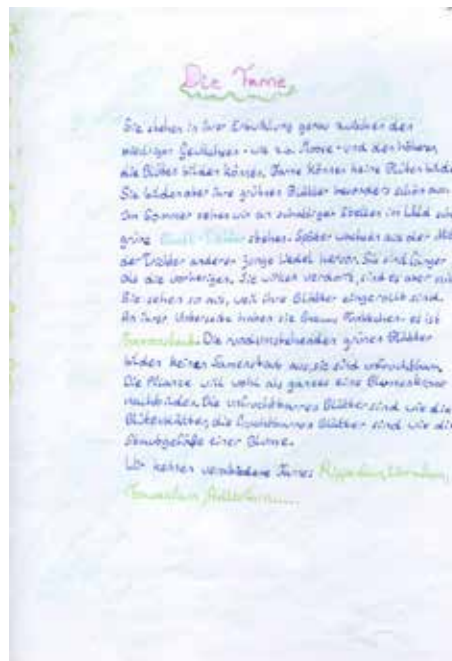 Die Farne
Sie stehen in ihrer Entwicklung genau zwischen den
niedrigen Gewächsen - wie z.B. Moose - und den höheren,
die Blüten bilden können. Farne können keine Blüten bilde
Sie bilden aber ihre grünen Blätter besonders schön aus.
Im Sommer sehen wir an schattigen Stellen im Wald
grüne Blatt-Trichter stehen. Später wachsen aus der
der Trichter anderer junge Wedel hervor. Sie sind jünger
als die vorherigen. Sie wirken verdorrt, sind es aber
Sie sehen so aus, weil ihre Blätter eingerollt sind.
An ihrer Unterseite haben sie braune es ist
Die rundumstehenden grünen Blätter
bilden keinen Samenstaub aus, sie sind unfruchtbar.
Die Pflanze will wohl als ganzes eine Blumenkrone
nachbilden. Die unfruchtbaren Blätter sind wie die
Blütenblätter, die fruchtbaren Blätter sind wie die
Staubgefäße einer Blume.
Wir kennen verschiedene Farne: